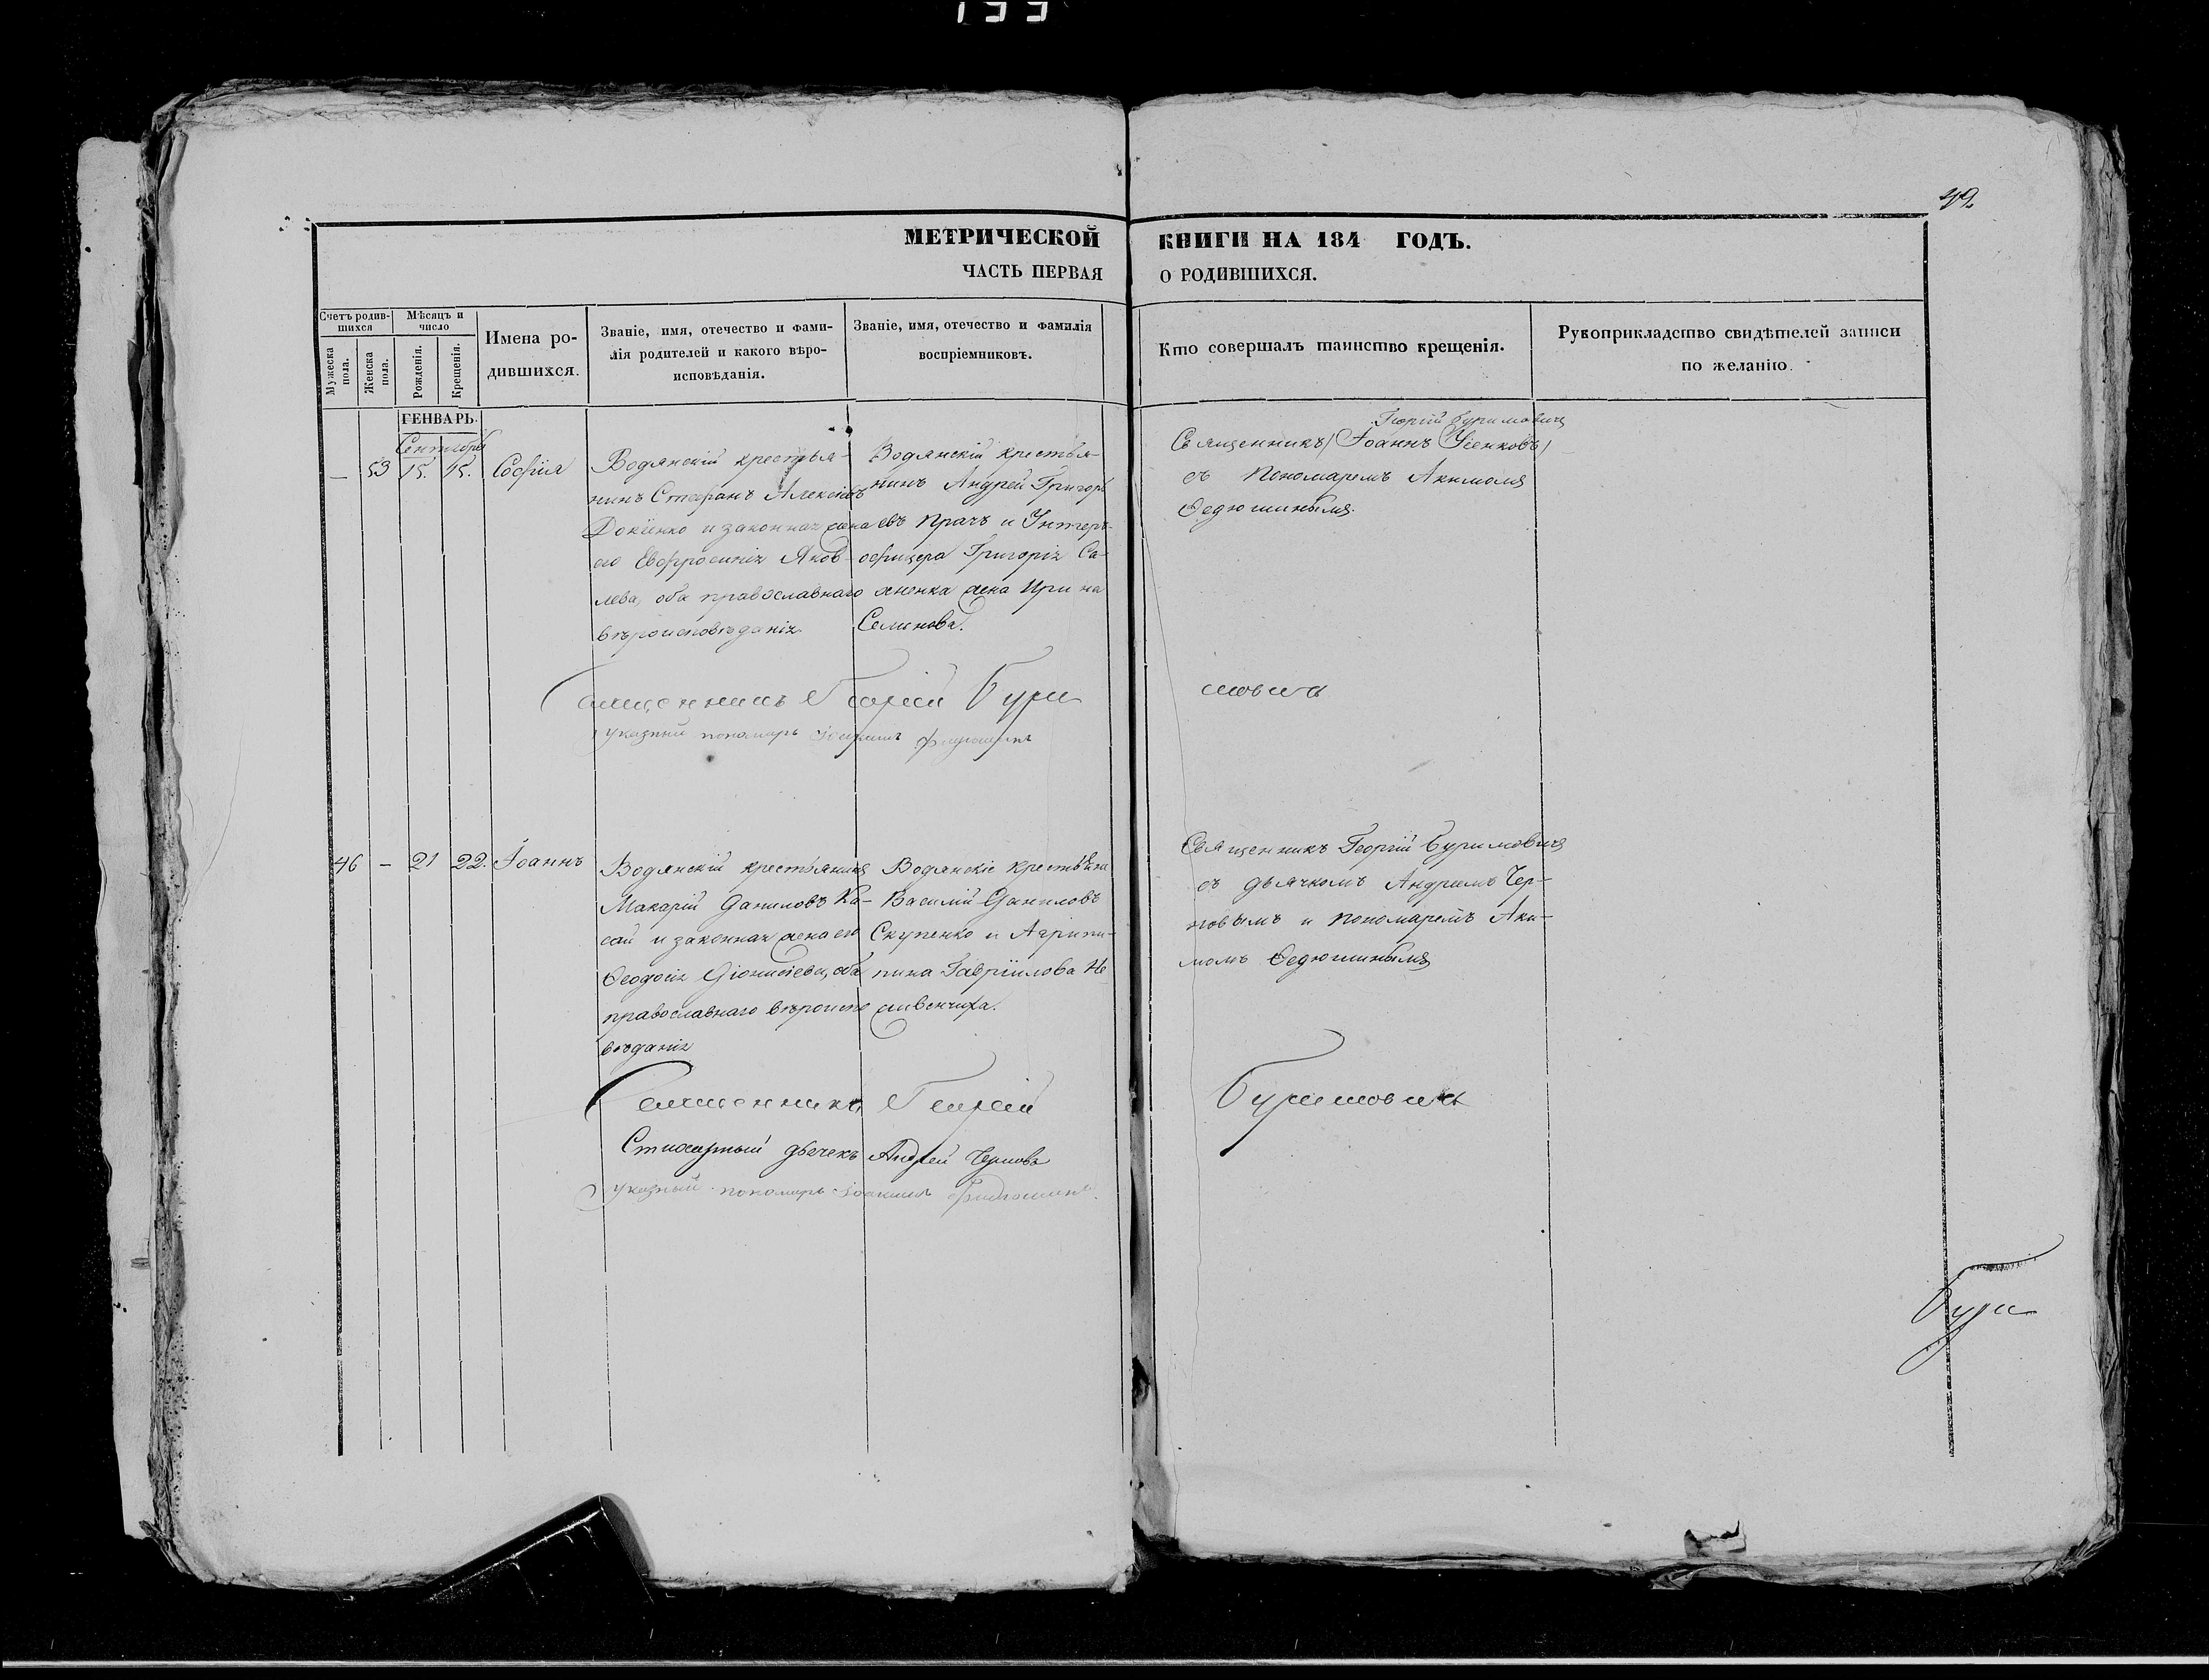 133
49.
МЕТРИЧЕСКОЙ КНИГИ НА 184 ГОДЪ.
ЧАСТЬ ПЕРВАЯ О РОДИВШИХСЯ.
Счетъ родившихся
Мужеска пола.
Женска пола.
Мѣсяцъ и число
Рожденія.
Крещенія.
Имена родившихся.
Званіе, имя, отечество и фами-
лія родителей и какого вѣро-
исповѣданія.
Званіе, имя, отечество и фамилія
воспріемниковъ.
Кто совершалъ таинство крещенія.
Рукоприкладство свидѣтелей записи
по желанію.
ГЕНВАРЬ.
Сентябрь
— 53 15. 15. Софія
Водянскій крестья-
нинъ Стефанъ Алексіевъ
Докіенко и законная жена
его Евфросинія Яков-
лева, оба православнаго
вѣроисповѣданія
Водянскій крестья-
нинъ Андрей Григорь
евъ Прачъ и Унтеръ-
офицера Григорія Са-
жена Ирина
Семенова.
Георгій Буримовичъ
Священникъ (Іоаннъ
съ Пономаремъ Акимомъ
Ѳедюшинымъ.
Священникъ Георгій Бури
мовичъ
указный пономарь Іоакимъ Федюшинъ
46 — 21 22. Іоаннъ
Водянскій крестьянинъ
Макарій Даниловъ Ка-
сай и законная жена его
Ѳеодосія Діонисіева, оба
православнаго вѣроиспо
вѣданія
Водянскіе крестьяне
Василій Даниловъ
Скупенко и Агрипи-
пина Гавріилова Не
Священникъ Георгій Буримовичъ
съ дьячкомъ Андреемъ Чер-
новымъ и пономаремъ Аки-
момъ Ѳедюшинымъ
Священникъ Георгій Буримовичъ
Стихарный дьячекъ Андрей Черновъ
указный пономарь Іоакимъ Федюшинъ.
Бури